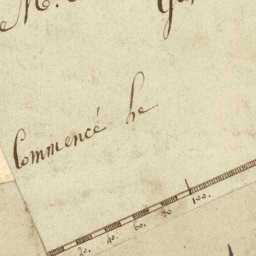 M.
Commencé he
20. 40. 60. 80 100.